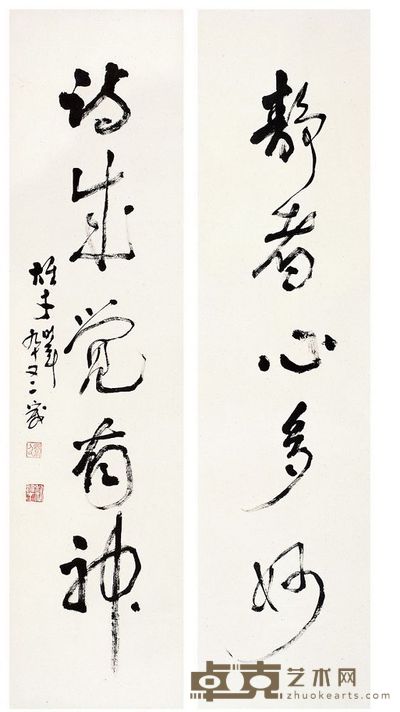 静者心多妙
诗成觉有神
雄才
九十又二岁
卓克艺术网
zhuokearts.com